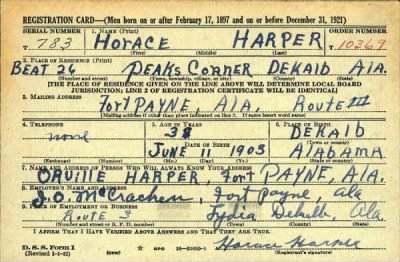 REGISTRATION CARD—(Men born on or after February 17, 1897 and on or before December 31, 1921)
SERIAL NUMBER 1. NAME (Print) ORDER NUMBER
T 783 HORACE HARPER 10369
(First) (Middle) (Last)
2. PLACE OF RESIDENCE (Print)
BEAT 26 PEAKS CORNER DEKALB ALA.
(Number and street) (Town, township, village, or city) (County) (State)
[THE PLACE OF RESIDENCE GIVEN ON THE LINE ABOVE WILL DETERMINE LOCAL BOARD
JURISDICTION; LINE 2 OF REGISTRATION CERTIFICATE WILL BE IDENTICAL]
3. MAILING ADDRESS
FORT PAYNE, ALA. ROUTE III
(Mailing address if other than place indicated on line 2. If same insert word same)
4. TELEPHONE 5. AGE IN YEARS 6. PLACE OF BIRTH
none 38 DEKALB
DATE OF BIRTH (Town or county)
JUNE 11 1903 ALABAMA
(Exchange) (Number) (Mo.) (Day) (Yr.) (State or country)
7. NAME AND ADDRESS OF PERSON WHO WILL ALWAYS KNOW YOUR ADDRESS
ORVILLE HARPER, FORT PAYNE, ALA.
8. EMPLOYER'S NAME AND ADDRESS
J.O. McCrachen, Fort Payne, Ala
9. PLACE OF EMPLOYMENT OR BUSINESS
Route 3 Lydia Dekalb, Ala.
(Number and street or R. F. D. number) (Town) (County) (State)
I AFFIRM THAT I HAVE VERIFIED ABOVE ANSWERS AND THAT THEY ARE TRUE.
D. S. S. Form 1
(Revised 1-1-42) GPO Horace Harper